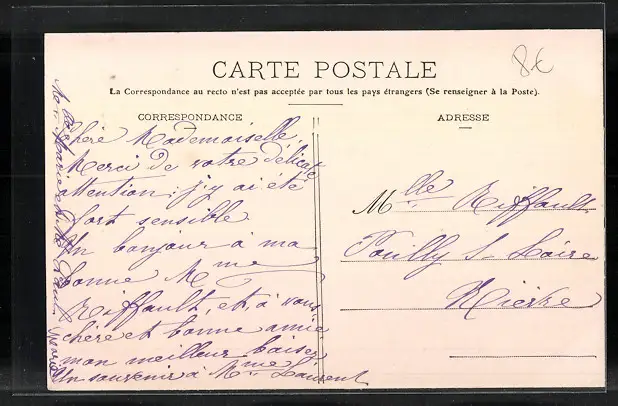 8€
CARTE POSTALE
La Correspondance au recto n'est pas acceptée par tous les pays étrangers (Se renseigner à la Poste).
CORRESPONDANCE
Chère Mademoiselle,
Merci de votre délicate
attention; j'y ai été
fort sensible
Un bonjour à ma
bonne Mme
Riffault, et, à vous
chère et bonne amie
mon meilleur baiser
Un souvenir à Mme Laurent
ADRESSE
Mlle Riffault
Pouilly S- Loire
Nièvre